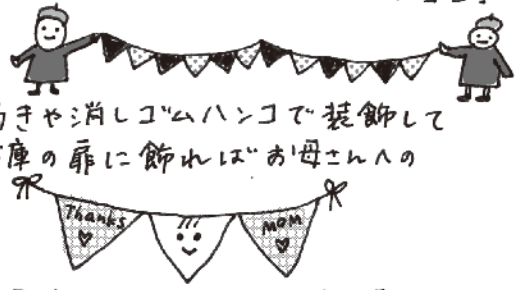 きや消しゴムハンコで装飾して
庫の扉に飾ればお母さんへの
Thanks
MOM